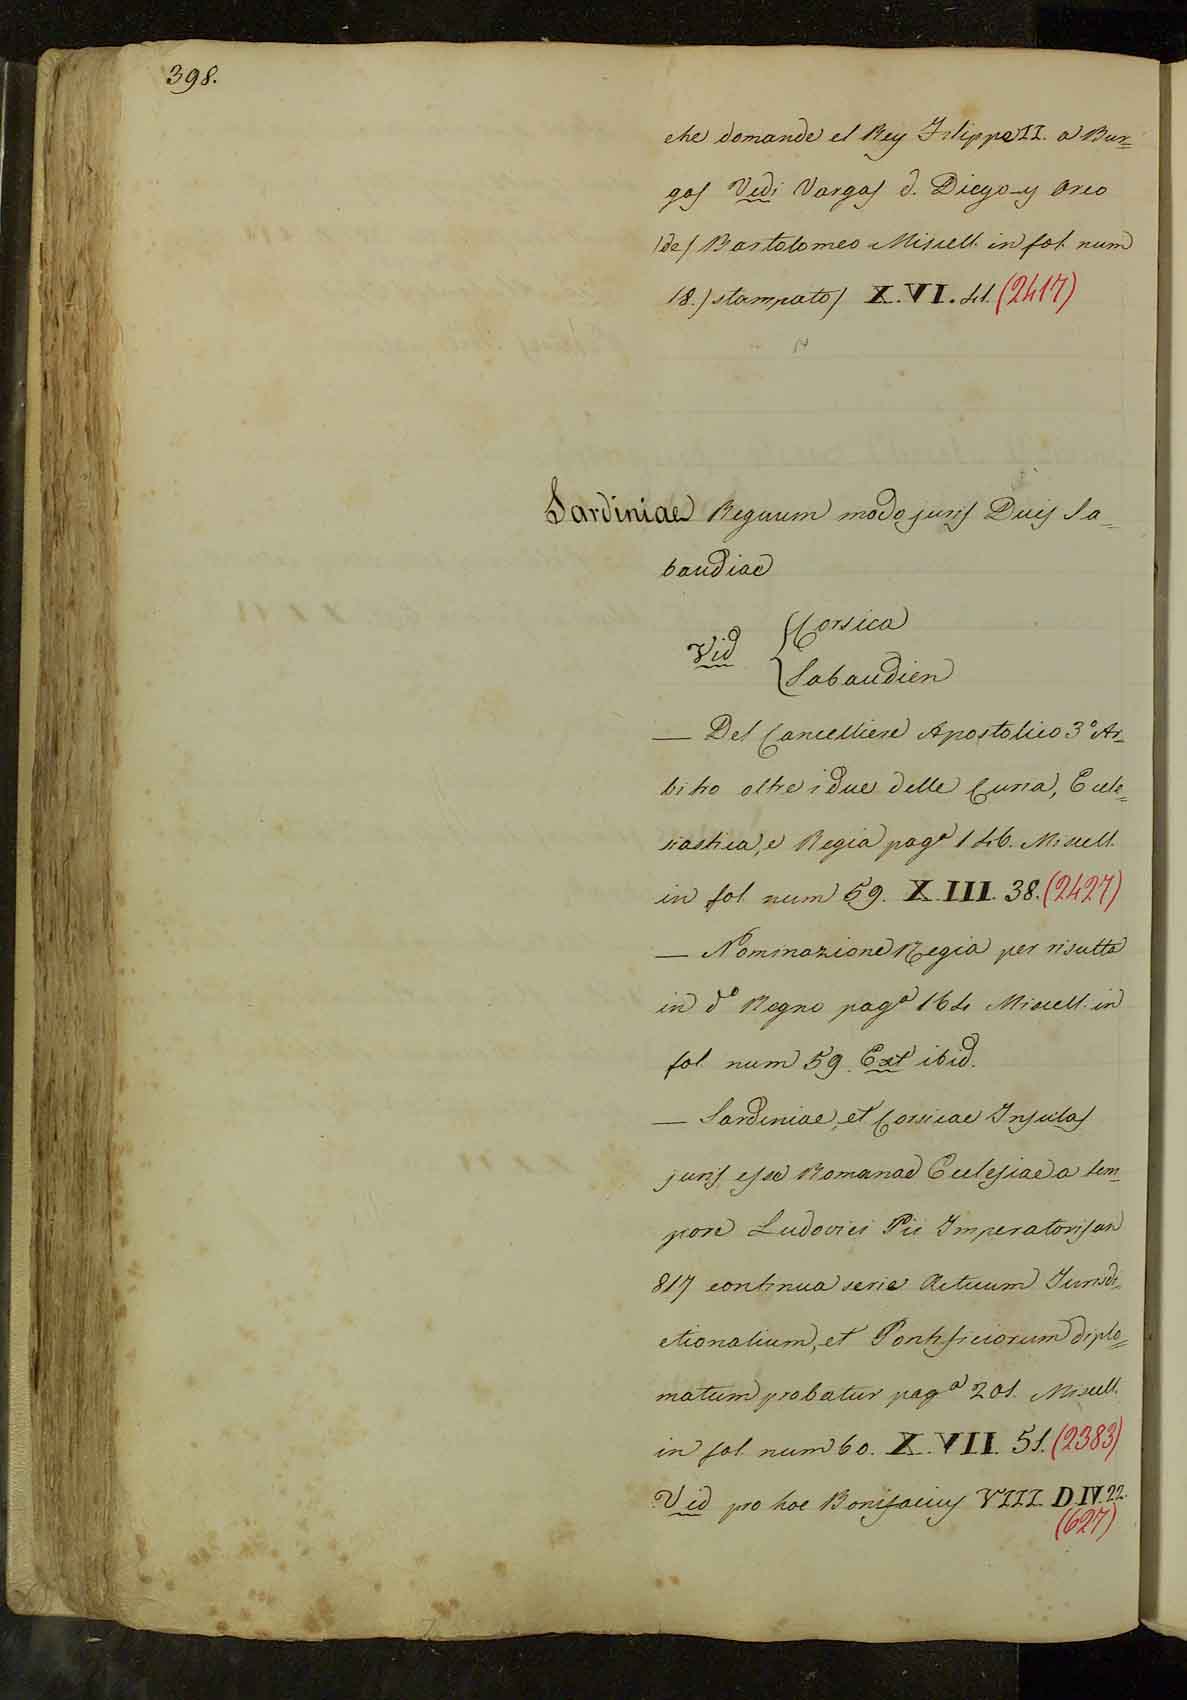 398.
che domande el Rey Filippo II. a Bur=
gos Vedi Vargas d. Diego y Oreo
des Bartolomeo Miscell. in fol. num
18. / stampato / X. VI. 41. (2417)
Sardiniae Regnum modo juris Ducis Sa=
baudiae
Vid { Corsica
{ Sabaudien
— Del Cancelliere Apostolico 3º Ar=
bitro oltre i due delle Curia, Eccle=
siastica, e Regia pagª 146. Miscell.
in fol. num 59. X. III. 38. (2427)
— Nominazione Regia per risulta
in dº Regno pagª 164 Miscell. in
fol. num 59. Ext ibid.
— Sardiniae, et Corsicae Insulas
juris esse Romanae Ecclesiae a tem=
pore Ludovici Pii Imperatoris an
817 continua serie Actuum Jurisdi=
ctionalium, et Pontificiorum diplo=
matum probatur pagª 201. Miscell.
in fol. num 60. X. VII. 51. (2383)
Vid pro hoc Bonifacius VIII. D. IV. 22.
(627)